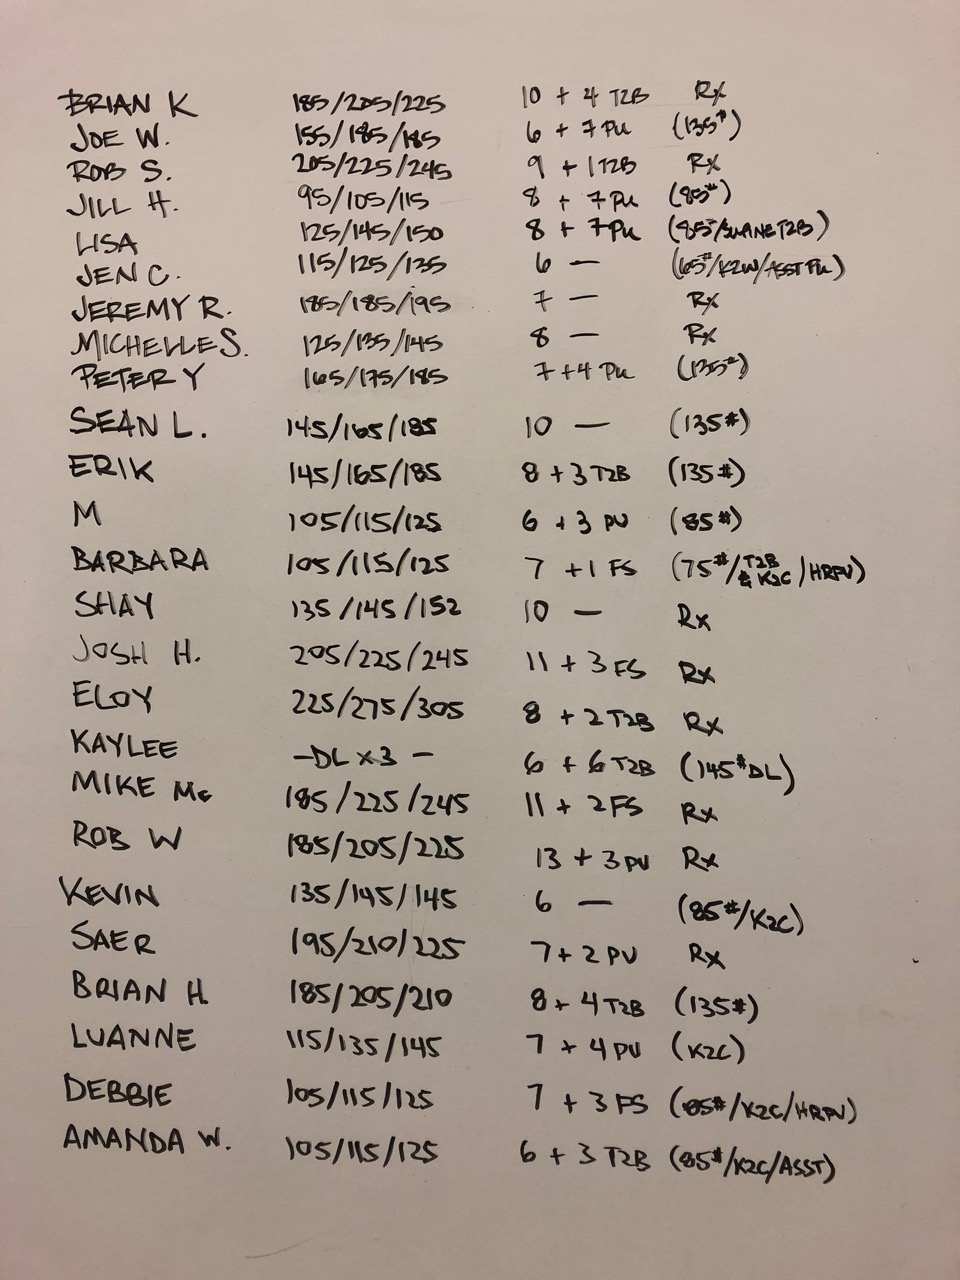 BRIAN K 185/205/225 10 + 4 T2B Rx
JOE W. 155/185/185 6 + 7 PU (135#)
ROB S. 205/225/245 9 + 1 T2B Rx
JILL H. 95/105/115 8 + 7 PU (85#)
LISA 125/145/150 8 + 7 PU (85#/ T2B)
JEN C. 115/125/135 6 — (65#/K2W/ASST PU)
JEREMY R. 185/185/195 7 — Rx
MICHELLE S. 125/135/145 8 — Rx
PETER Y 165/175/185 7 + 4 PU (135#)
SEAN L. 145/165/185 10 — (135#)
ERIK 145/165/185 8 + 3 T2B (135#)
M 105/115/125 6 + 3 PU (85#)
BARBARA 105/115/125 7 + 1 FS (75#/T2B & K2C/HRPU)
SHAY 135/145/152 10 — Rx
JOSH H. 205/225/245 11 + 3 FS Rx
ELOY 225/275/305 8 + 2 T2B Rx
KAYLEE -DL x3 - 6 + 6 T2B (145# DL)
MIKE Mc 185/225/245 11 + 2 FS Rx
ROB W 185/205/225 13 + 3 PU Rx
KEVIN 135/145/145 6 — (85#/K2C)
SAER 195/210/225 7 + 2 PU Rx
BRIAN H. 185/205/210 8 + 4 T2B (135#)
LUANNE 115/135/145 7 + 4 PU (K2C)
DEBBIE 105/115/125 7 + 3 FS (85#/K2C/HRPU)
AMANDA W. 105/115/125 6 + 3 T2B (85#/K2C/ASST)